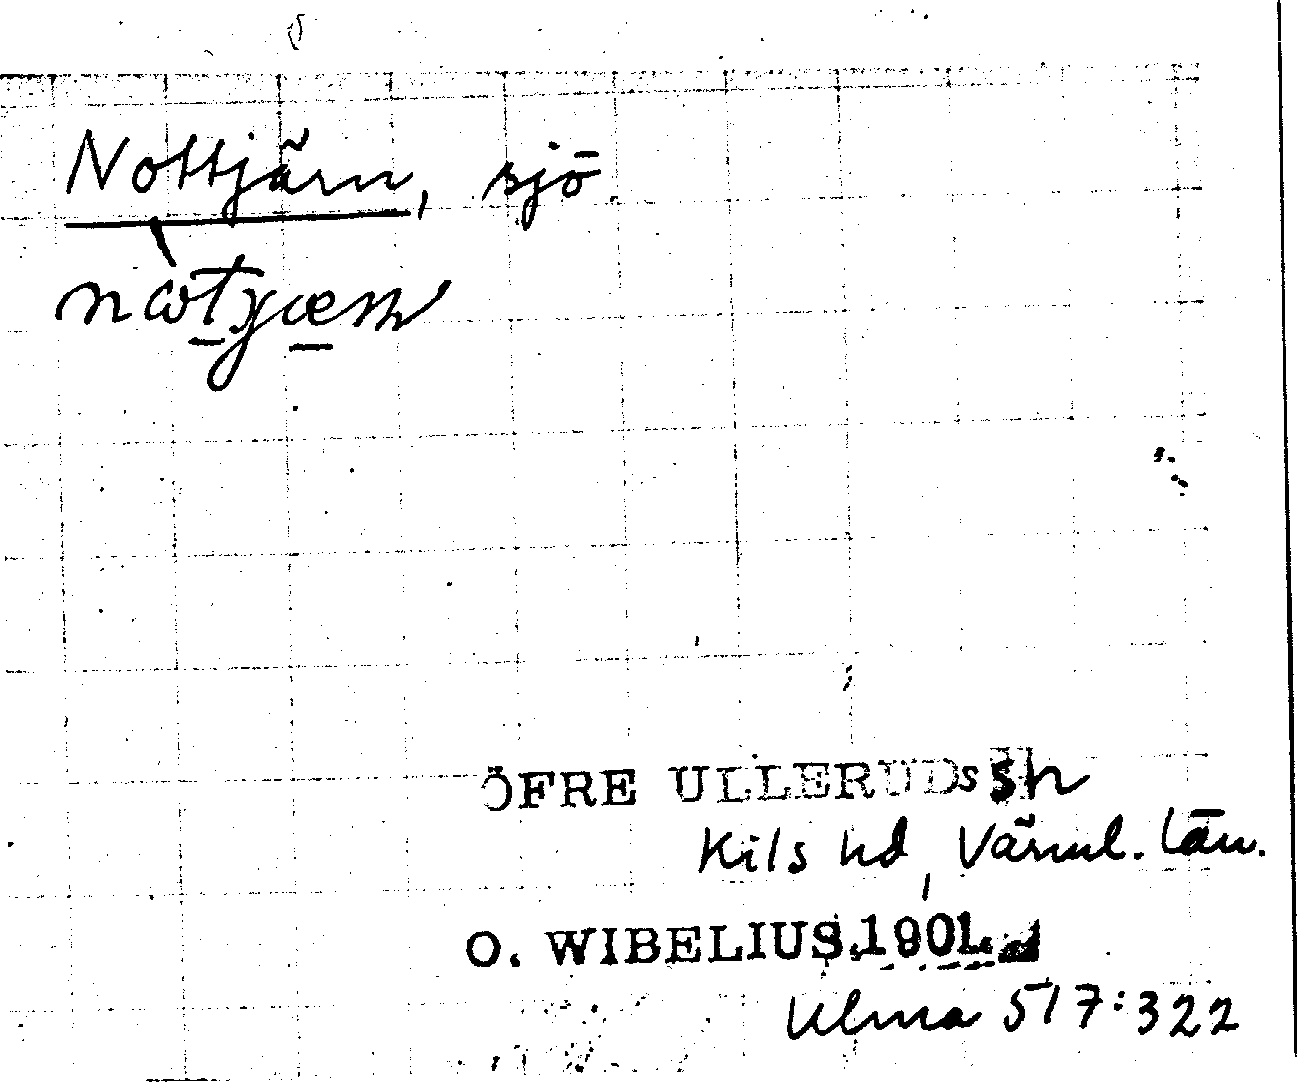 Nottjärn, sjö.
nòtjæṇ
ÖFRE ULLERUDs sn
Kils hd, Värml. län.
O. WIBELIUS.1901
Ulma 517:322